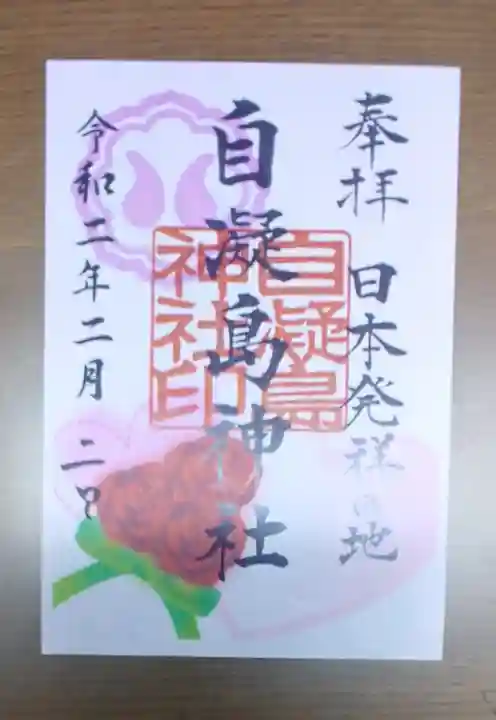 奉拝 日本発祥の地
自凝島神社
自凝島
神社印
令和二年二月二日